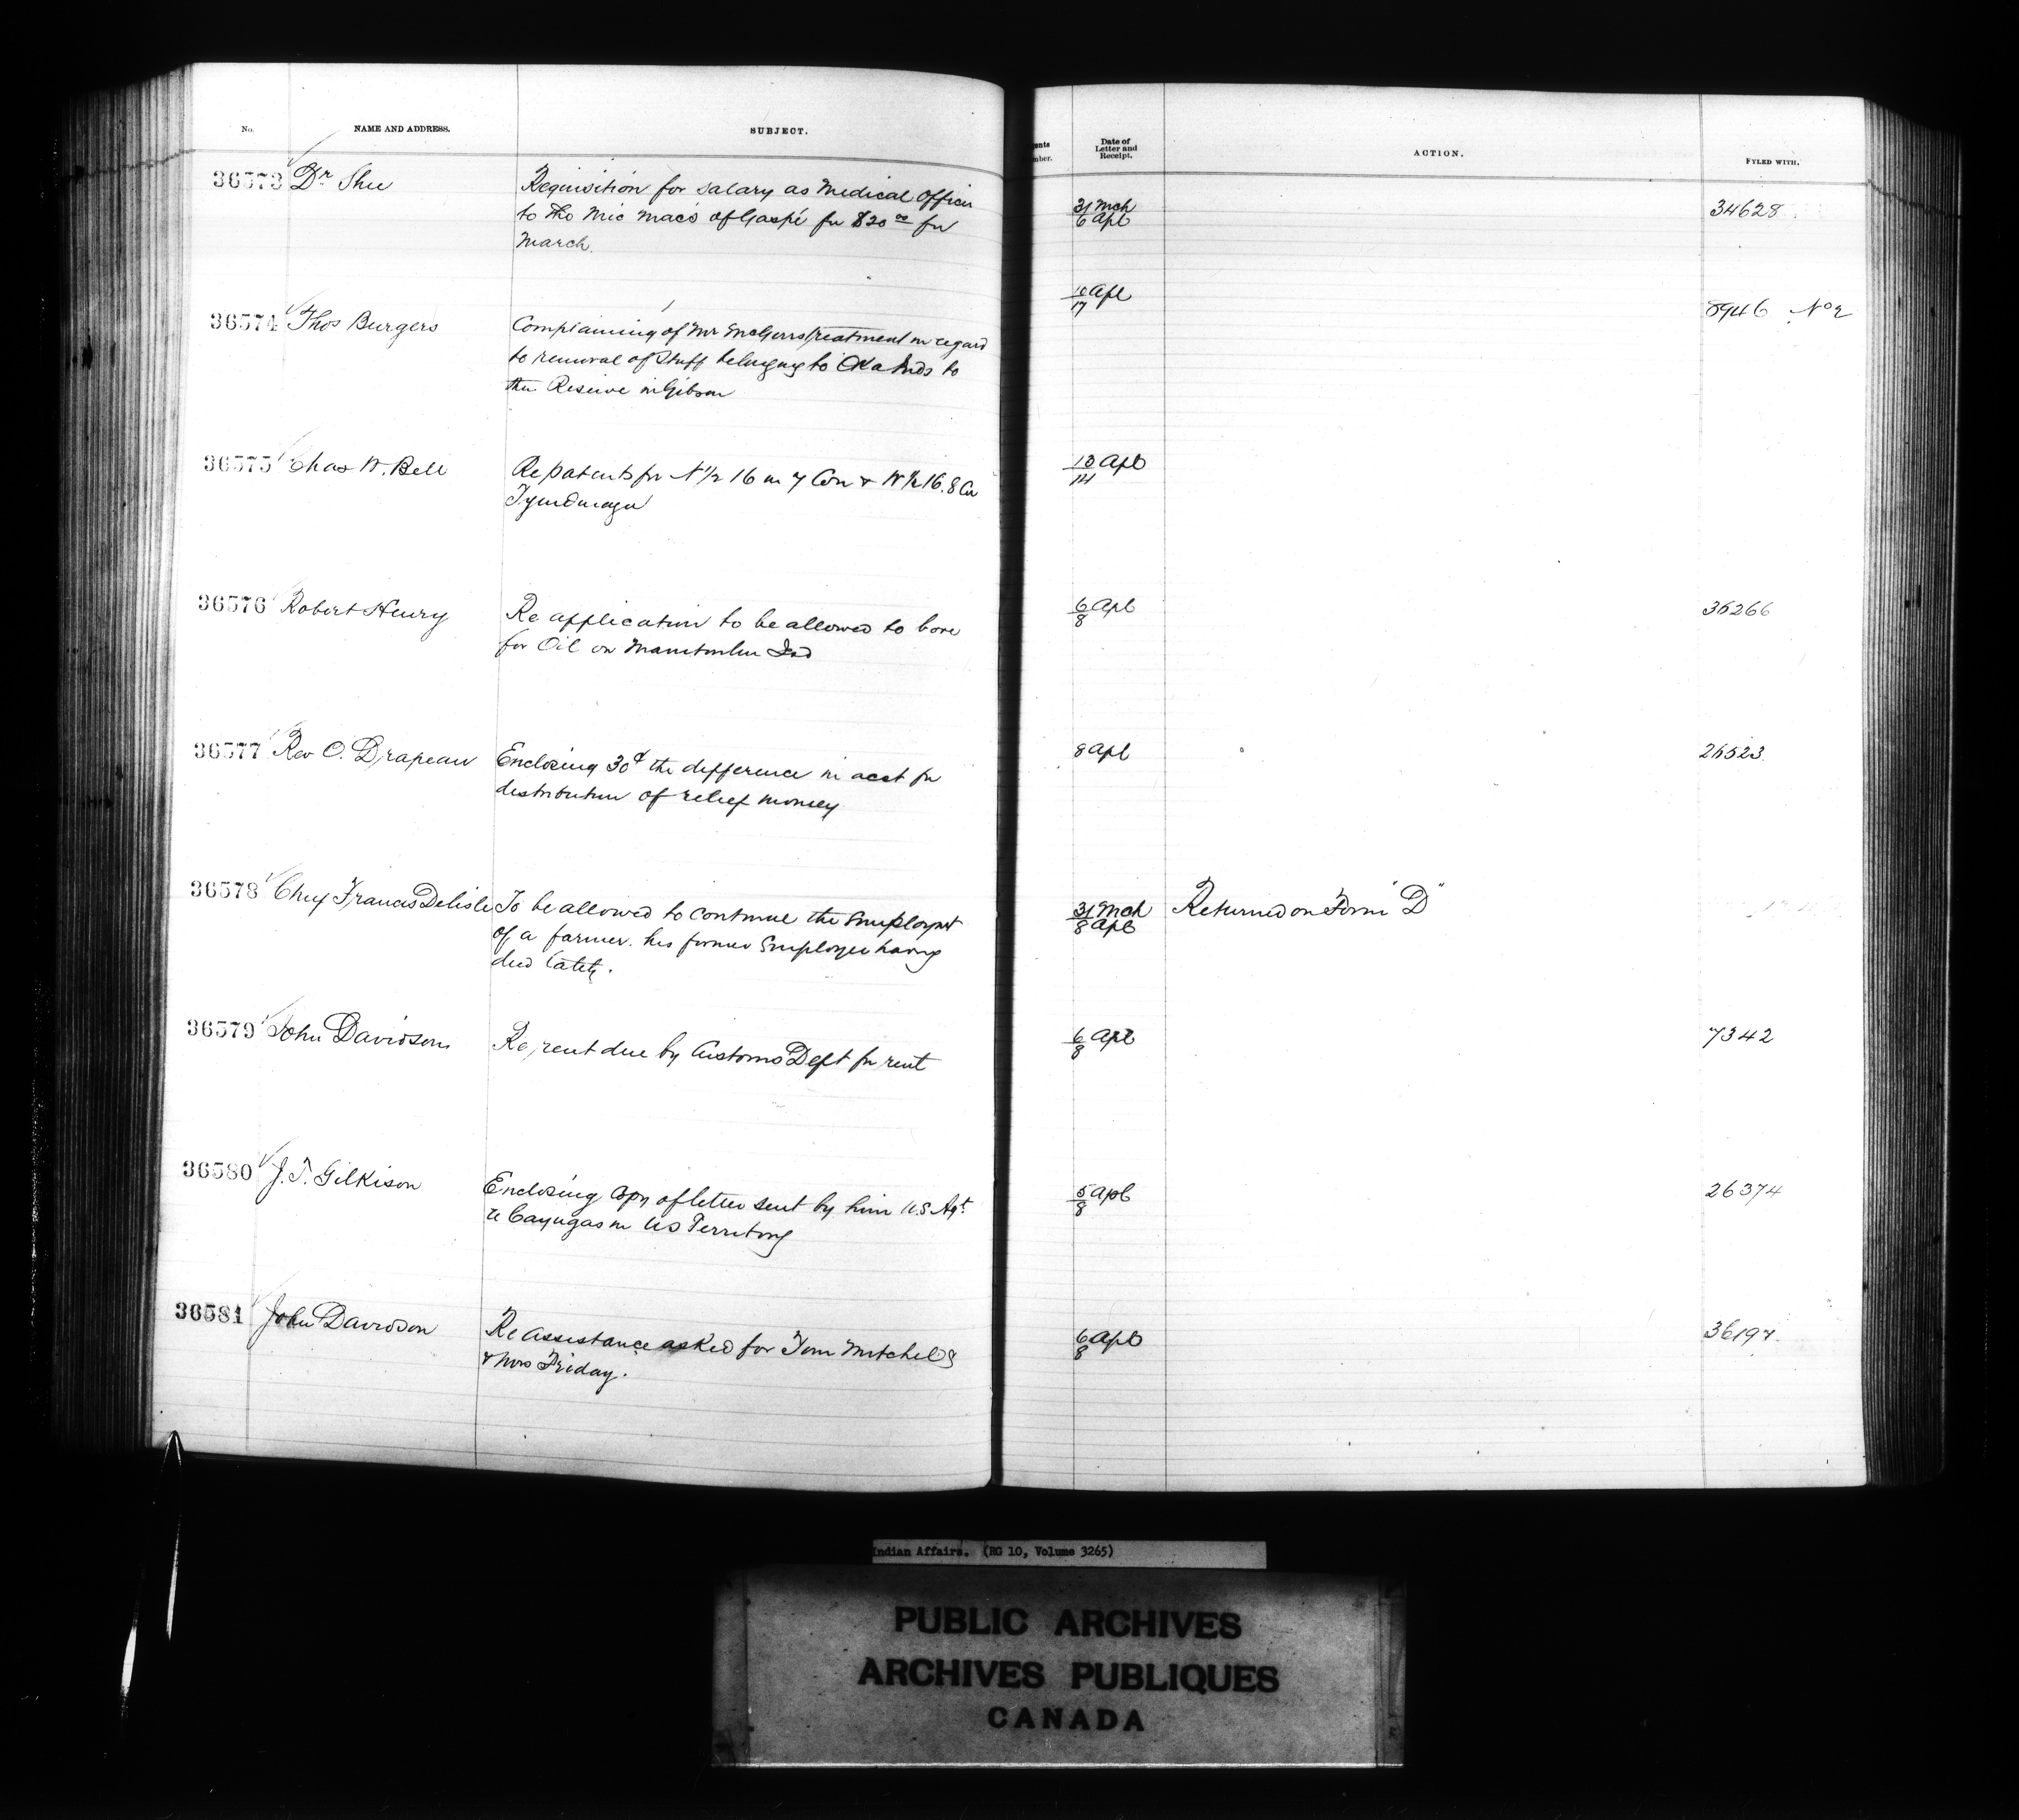 No. NAME AND ADDRESS. SUBJECT.
Date of Letter and Receipt. ACTION. FYLED WITH.
36573 Dr Shee Requisition for salary as Medical Officer
to the Mic Macs of Gaspé for $20 00 for
March.
31 Mch
6 Apl
34628
36574 Thos Burgers Complaining of Mr McGirrs treatment in regard
to removal of stuff belonging to Oka Inds to
the Reserve in Gibson
10 Apl
17
8946 No 2
36575 Chas W. Bell Re patents for N 1/2 16 in 7 Con & N 1/2 16. 8 Con
Tyendinaga
10 Apl
14
36576 Robert Henry Re application to be allowed to bore
for Oil on Manitoulin Isd
6 Apl
8
36266
36577 Rev O. Drapeau Enclosing 30 the difference in acct for
distribution of relief money
8 Apl
26523
36578 Chief Francis Delisle To be allowed to continue the employmt
of a farmer. his former employee having
died lately.
31 Mch
8 Apl
Returned on Form "D"
36579 John Davidson Re rent due by Customs Dept for rent
6 Apl
8
7342
36580 J. T. Gilkison Enclosing copy of letter sent by him U.S Agt
re Cayugas in US Territory
5 Apl
8
26374
36581 John Davidson Re assistance asked for Tom Mitchell
& Mrs Friday.
6 Apl
8
36197
Indian Affairs. (RG 10, Volume 3265)
PUBLIC ARCHIVES
ARCHIVES PUBLIQUES
CANADA